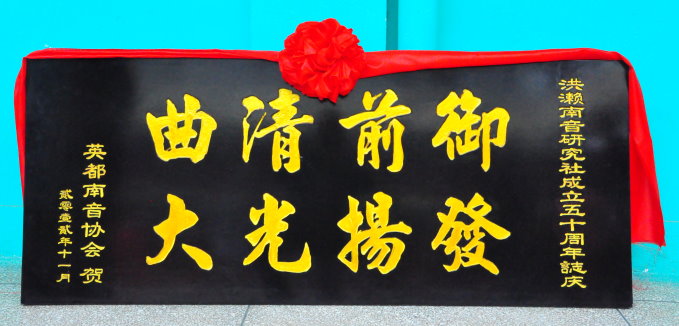 洪濑南音研究社成立五十周年誌庆
御前清曲
發揚光大
英都南音协会 贺
贰零壹贰年十一月